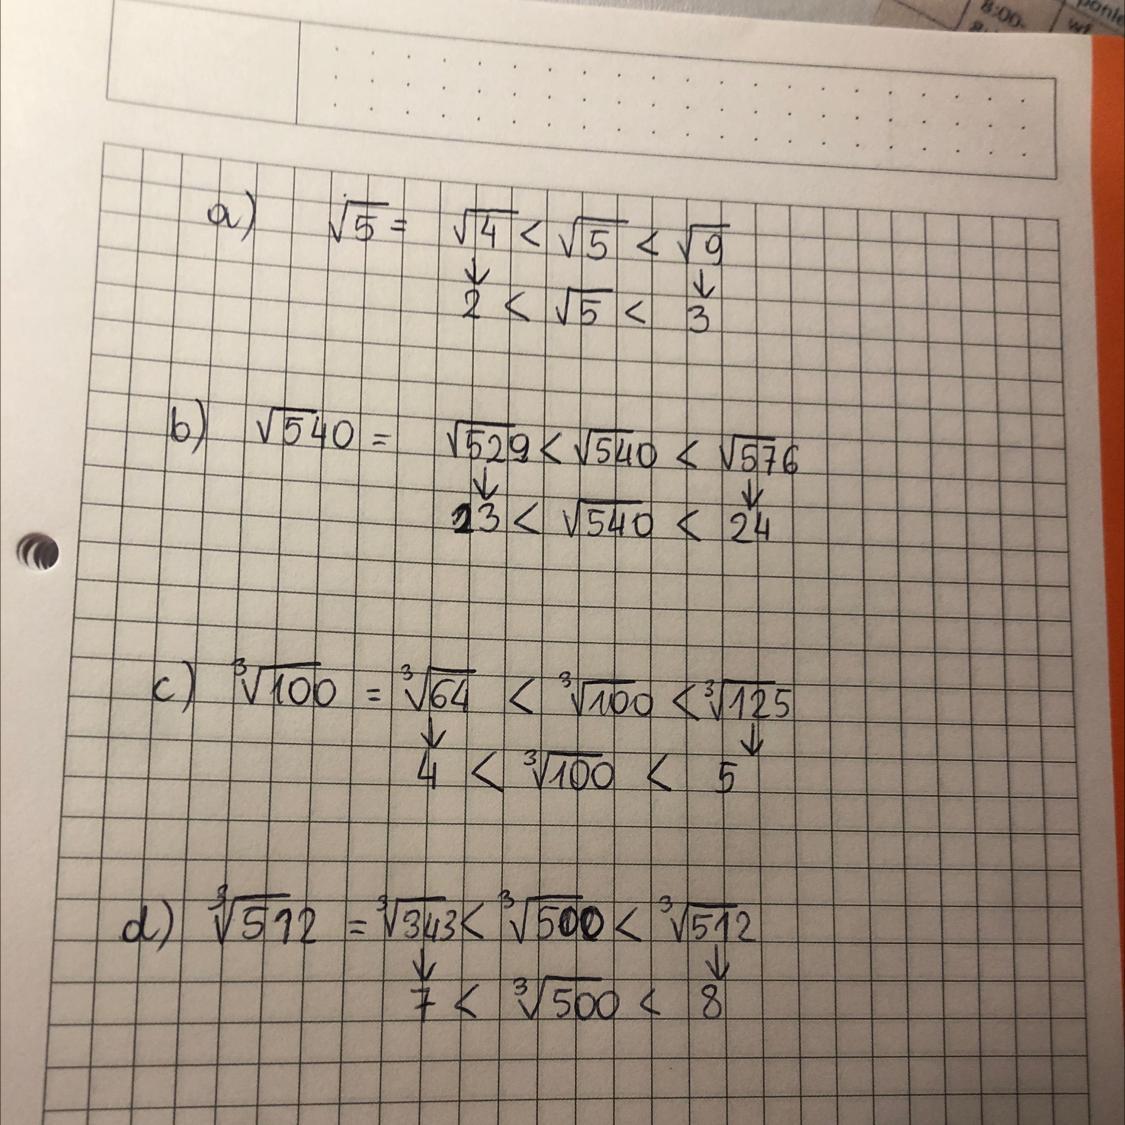 8:00-
a) √5 = √4 < √5 < √9
↓ ↓
2 < √5 < 3
b) √540 = √529 < √540 < √576
↓ ↓
23 < √540 < 24
c) ³√100 = ³√64 < ³√100 < ³√125
↓ ↓
4 < ³√100 < 5
d) ³√512 = ³√343 < ³√500 < ³√512
↓ ↓
7 < ³√500 < 8